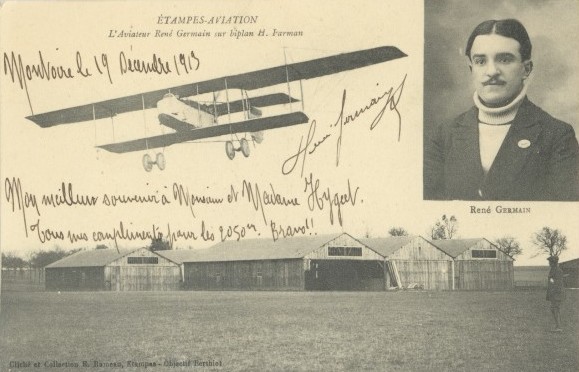 ÉTAMPES-AVIATION
L'Aviateur René Germain sur biplan H. Farman
Montoire le 19 Décembre 1913
Germain
Mon meilleur souvenir à Monsieur et Madame
Tous mes compliments pour les 2050m. Bravo!!
René GERMAIN
Cliché et Collection R. Rameau, Etampes - Objectif Berthiot